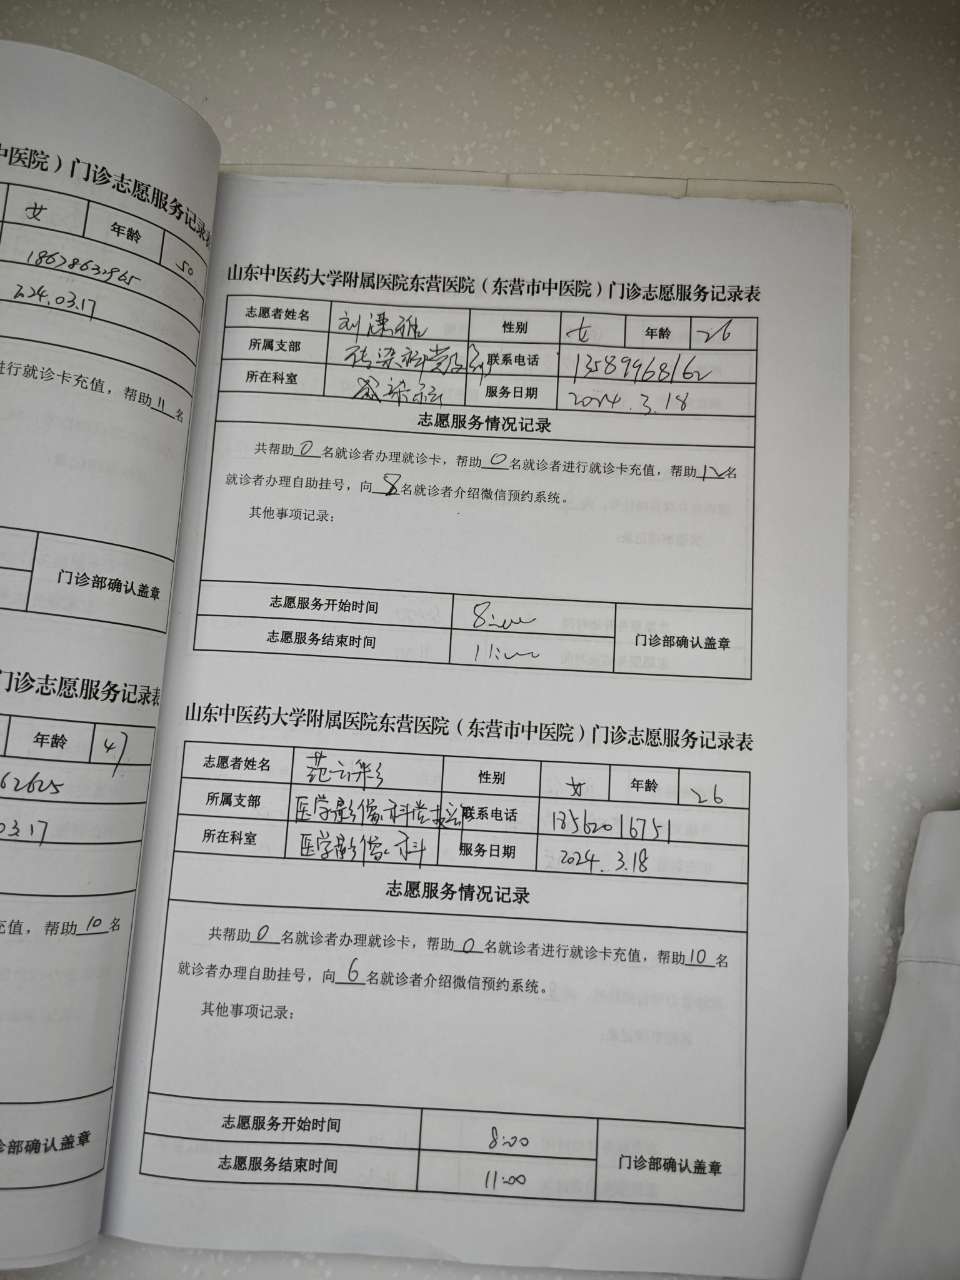 中医院）门诊志愿服务记录表
女 年龄 50
18678632965
224.03.17
进行就诊卡充值，帮助11名
门诊部确认盖章
门诊志愿服务记录表
年龄 47
62625
03.17
充值，帮助10名
部确认盖章
山东中医药大学附属医院东营医院（东营市中医院）门诊志愿服务记录表
志愿者姓名 刘 雅 性别 女 年龄 26
所属支部 传染科党支部 联系电话 13589968162
所在科室 服务日期 2024.3.18
志愿服务情况记录
共帮助0名就诊者办理就诊卡，帮助0名就诊者进行就诊卡充值，帮助12名
就诊者办理自助挂号，向8名就诊者介绍微信预约系统。
其他事项记录：
志愿服务开始时间 8:00
门诊部确认盖章
志愿服务结束时间 11:00
山东中医药大学附属医院东营医院（东营市中医院）门诊志愿服务记录表
志愿者姓名 范云彩 性别 女 年龄 26
所属支部 医学影像科党支部 联系电话 18562016751
所在科室 医学影像科 服务日期 2024.3.18
志愿服务情况记录
共帮助0名就诊者办理就诊卡，帮助0名就诊者进行就诊卡充值，帮助10名
就诊者办理自助挂号，向6名就诊者介绍微信预约系统。
其他事项记录：
志愿服务开始时间 8:00
门诊部确认盖章
志愿服务结束时间 11:00